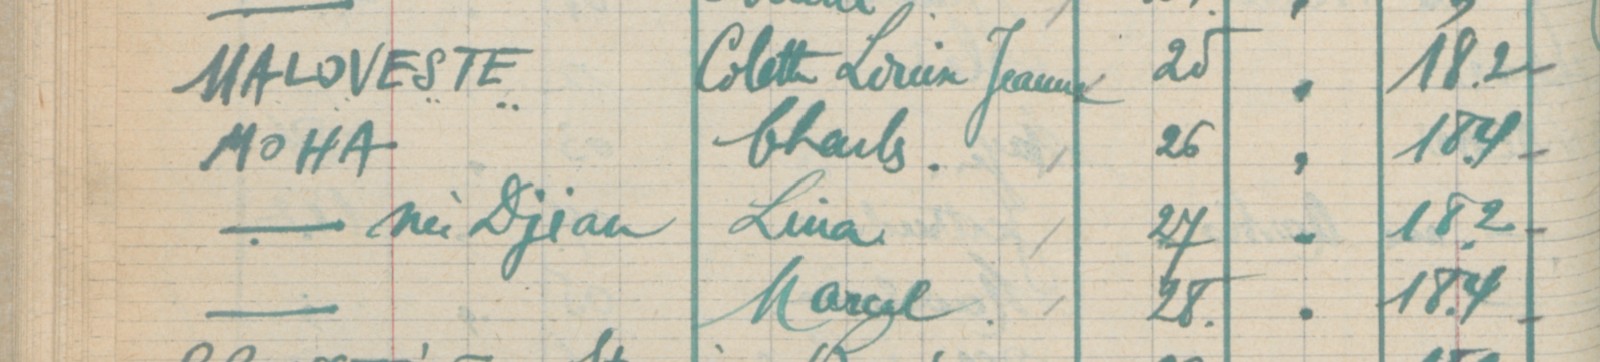 MALOVESTE Colette Lucien Jeanne 25 " 18.2
MOHA Charles. 26 " 18.4
— née Djian Lina 27 " 18.2
— Marcel 28. " 18.4